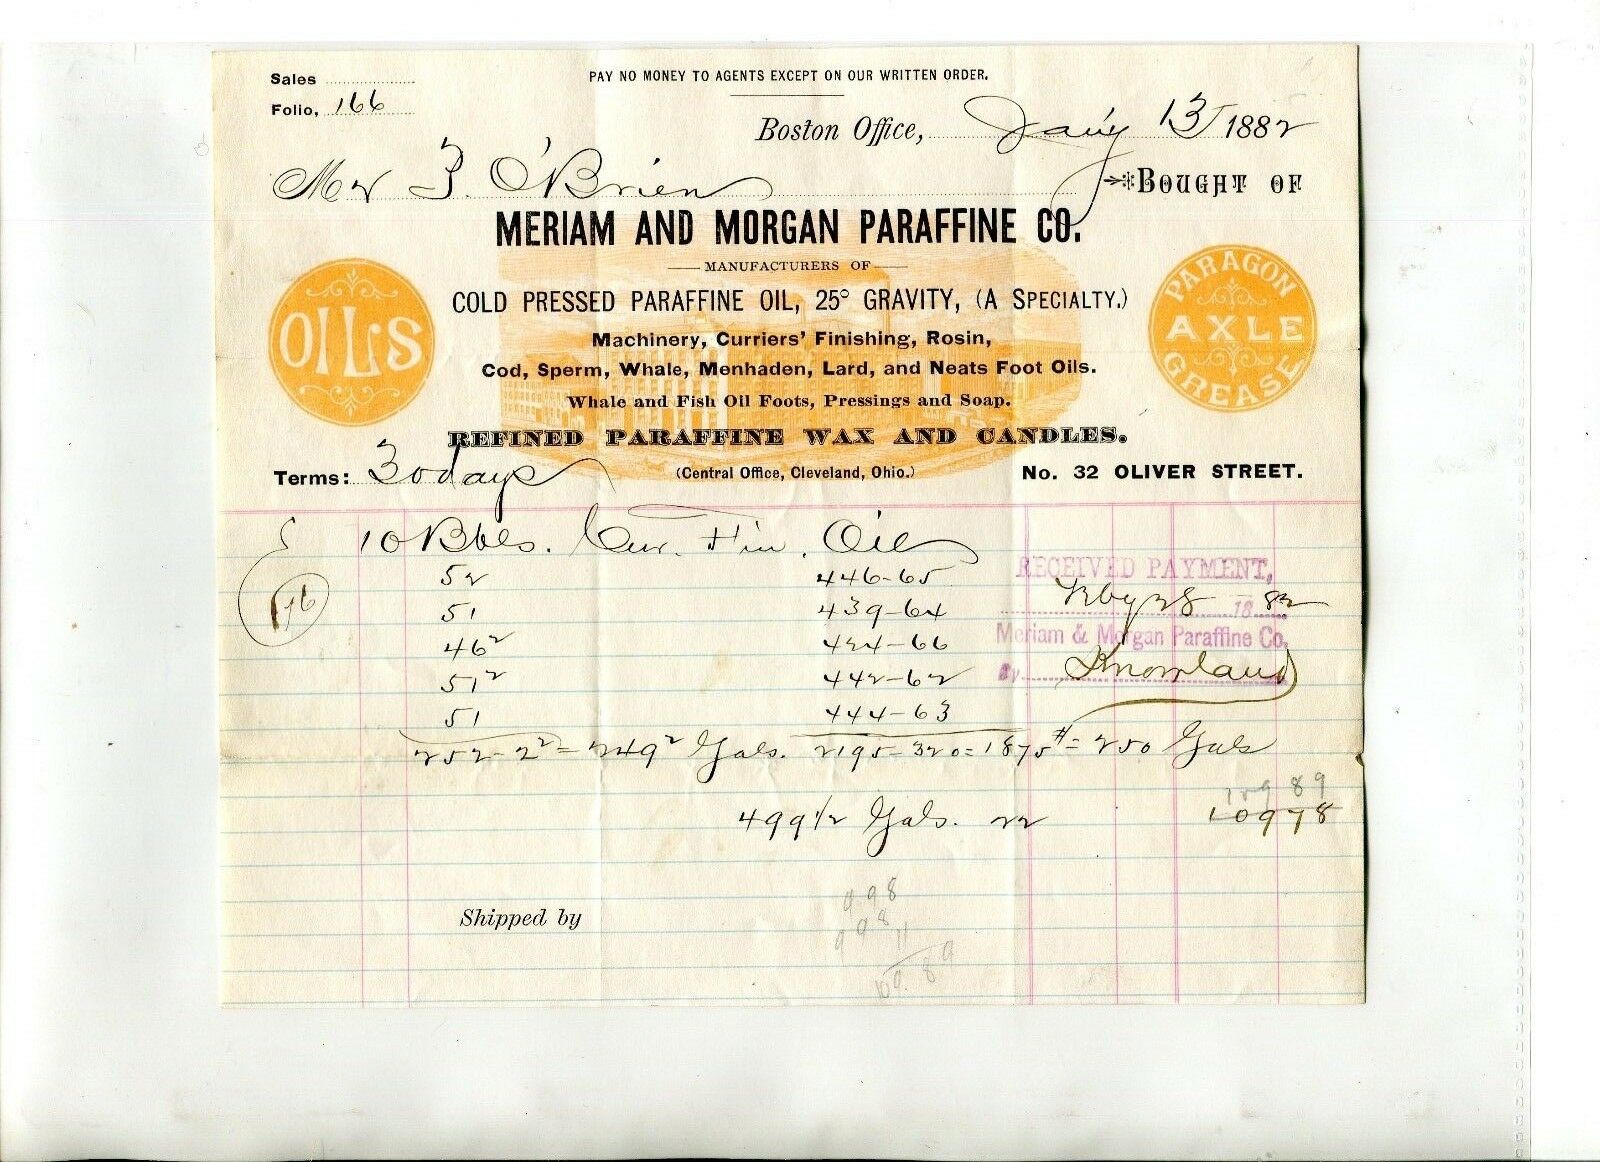 Sales
PAY NO MONEY TO AGENTS EXCEPT ON OUR WRITTEN ORDER.
Folio, 166
Boston Office, Jan'y 13 1882
Mr J. O'Brien
BOUGHT OF
MERIAM AND MORGAN PARAFFINE CO.
MANUFACTURERS OF
COLD PRESSED PARAFFINE OIL, 25° GRAVITY, (A SPECIALTY.)
OILS
PARAGON AXLE GREASE
Machinery, Curriers' Finishing, Rosin,
Cod, Sperm, Whale, Menhaden, Lard, and Neats Foot Oils.
Whale and Fish Oil Foots, Pressings and Soap.
REFINED PARAFFINE WAX AND CANDLES.
Terms: 30 days
(Central Office, Cleveland, Ohio.)
No. 32 OLIVER STREET.
10 Bbls. Cur. Fin. Oil
52 446-65
51 439-64
46² 424-66
51² 442-62
51 444-63
RECEIVED PAYMENT,
Feby 28 1882
Meriam & Morgan Paraffine Co.
By Knowland
252-2²=249² Gals. 2195-320=1875#=250 Gals
109 89
499 1/2 Gals. 22 10978
998
998
11
109.89
Shipped by